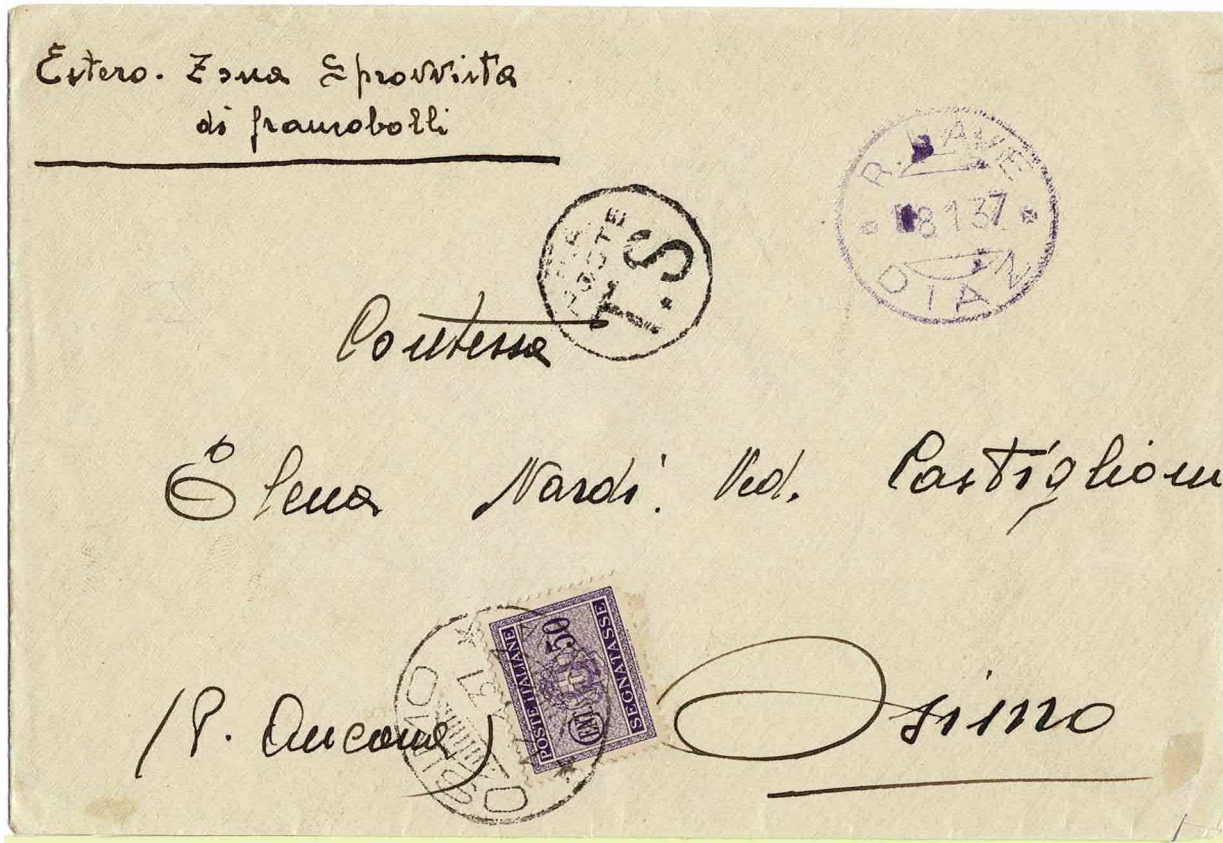 Estero. Zona Sprovvista
di francobolli
R. NAVE
8 1 37
DIAZ
POSTE
T.S
Contessa
Elena Nardi. Ved. Castiglioni
POSTE ITALIANE
50
CENT
SEGNATASSE
(P. Ancona) Osimo
OSIMO
37